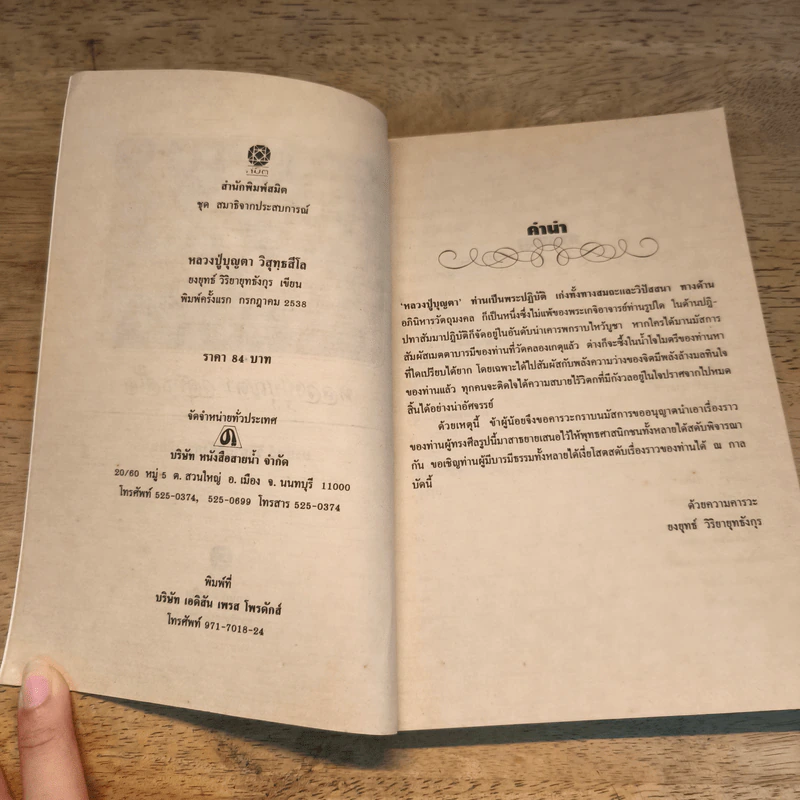 สมิต
สำนักพิมพ์สมิต
ชุด สมาธิจากประสบการณ์
หลวงปู่บุญตา วิสุทฺธสีโล
ยงยุทธ์ วิริยายุทธังกุร เขียน
พิมพ์ครั้งแรก กรกฎาคม 2538
ราคา 84 บาท
จัดจำหน่ายทั่วประเทศ
บริษัท หนังสือสายน้ำ จำกัด
20/60 หมู่ 5 ต. สวนใหญ่ อ. เมือง จ. นนทบุรี 11000
โทรศัพท์ 525-0374, 525-0699 โทรสาร 525-0374
พิมพ์ที่
บริษัท เอดิสัน เพรส โพรดักส์
โทรศัพท์ 971-7018-24
คำนำ
'หลวงปู่บุญตา' ท่านเป็นพระปฏิบัติ เก่งทั้งทางสมถะและวิปัสสนา ทางด้าน
อภินิหารวัตถุมงคล ก็เป็นหนึ่งซึ่งไม่แพ้ของพระเกจิอาจารย์ท่านรูปใด ในด้านปฏิ-
ปทาสัมมาปฏิบัติก็จัดอยู่ในอันดับน่าเคารพกราบไหว้บูชา หากใครได้มานมัสการ
สัมผัสเมตตาบารมีของท่านที่วัดคลองเกตุแล้ว ต่างก็จะซึ้งในน้ำใจไมตรีของท่านหา
ที่ใดเปรียบได้ยาก โดยเฉพาะได้ไปสัมผัสกับพลังความว่างของจิตมีพลังล้างมลทินใจ
ของท่านแล้ว ทุกคนจะติดใจได้ความสบายไร้วิตกที่มีกังวลอยู่ในใจปราศจากไปหมด
สิ้นได้อย่างน่าอัศจรรย์
ด้วยเหตุนี้ ข้าผู้น้อยจึงขอคารวะกราบนมัสการขออนุญาตนำเอาเรื่องราว
ของท่านผู้ทรงศีลรูปนี้มาสาธยายเสนอไว้ให้พุทธศาสนิกชนทั้งหลายได้สดับพิจารณา
กัน ขอเชิญท่านผู้มีบารมีธรรมทั้งหลายได้เงี่ยโสตสดับเรื่องราวของท่านได้ ณ กาล
บัดนี้
ด้วยความคารวะ
ยงยุทธ์ วิริยายุทธังกุร